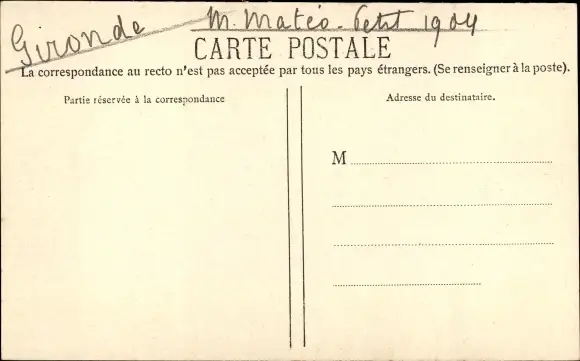 Gironde M. Matéo - Petit 1904
CARTE POSTALE
La correspondance au recto n'est pas acceptée par tous les pays étrangers. (Se renseigner à la poste).
Partie réservée à la correspondance
Adresse du destinataire.
M